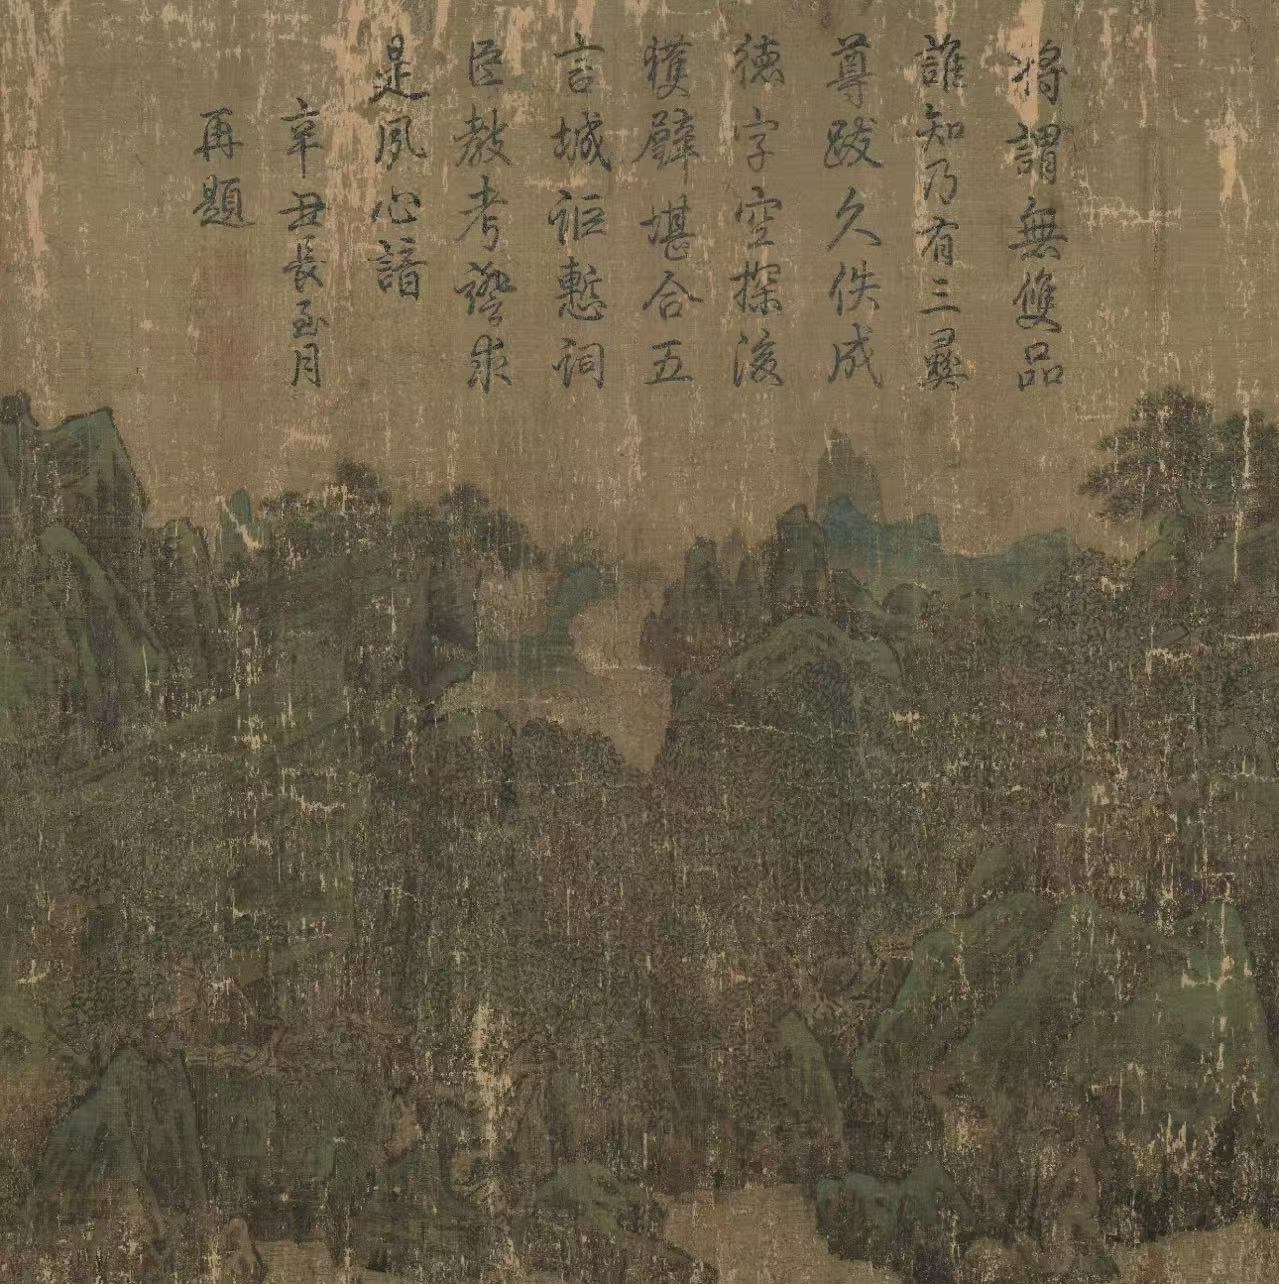 將謂無雙品
誰知乃有三彛
尊跋久佚成
德字空探後
獲辥堪合五
言城詎慙詞
臣教考證求
是夙心諳
辛丑長至月
再題